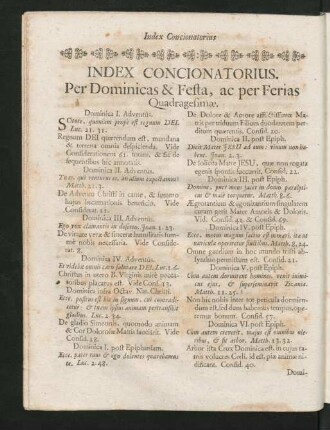 Index Concionatorius
INDEX CONCIONATORIUS.
Per Dominicas & Festa, ac per Ferias
Quadragesimæ.
Dominica I. Adventus.
Scitote, quoniam propè est regnum DEI.
Luc. 21. 31.
Regnum DEI quærendum est, mundana
& terrena omnia despicienda. Vide
Considerationem 61. totam, & sic de
sequentibus hic annotatis.
Dominica II. Adventus.
Tu es, qui venturus es, an alium expectamus?
Matth. 11. 3.
De Adventu Christi in carne, & summo
hujus Incarnationis beneficio. Vide
Consid. 17.
Dominica III. Adventus.
Ego vox clamantis in deserto. Joan. 1. 23.
De vitæ
mè nobis necessaria. Vide Considerat.
Dominica IV. Adventus.
Et videbit omnis caro salutare DEI. Luc. 3. 6.
Christus in utero B. Virginis
toribus placatus est. Vide Cons. 13.
Dominica infra Octav. Nat. Christi.
Ecce, positus est hic in signum, cui contradi-
cetur: & tuam ipsius animam pertransibit
gladius. Luc. 2. 34.
De gladio Simeonis, quomodo animam
& Cor Dolorosæ Matris lancinavit. Vide
Consid.
Dominica I. post Epiphaniam.
Ecce, pater tuus & ego dolentes quærebamus
te. Luc. 2. 48.
De Dolore & Amore afflictissimæ Ma-
tris per triduum Filium duodennem per-
ditum quærentis. Consid. 20.
Dominica II. post Epiph.
Dicit Mater JESU ad eum: vinum non ha-
bent. Joan. 2. 3.
De sollicita Matre JESU, quæ non rogata
egenis sponsis succurrit. Consid. 22.
Dominica III. post Epiph.
Domine, puer meus jacet in domo paralyti-
cus & malè torquetur. Matth. 8. 6.
Ægrotantium & animi languentium singularis
curam gerit Mater Amoris & Doloris.
Vid. Consid. & Consid. 59.
Dominica IV. post Epiph.
Ecce, motus magnus factus est in mari, ita ut
navicula operiretur fluctibus. Matth. 8. 24.
Omne gaudium in hoc mundo tristi
absynthio permixtum est. Consid. 21.
Dominica V. post Epiph.
Cum autem dormirent homines, venit inimi-
cus ejus, & superseminavit Zizania.
Matth. 13. 25.
Non hic nobis inter tot pericula dormien-
dum est, sed dum habemus tempus, ope-
remur bonum. Consid. 57.
Dominica VI. post Epiph.
Cum autem creverit, majus est omnibus ole-
ribus, & fit arbor. Matth. 13. 32.
Arbor ista Cor Dominica est, in cujus ra-
mis volucres Cœli, id est, piæ animæ ni-
dificant. Consid. 40.
Domi-